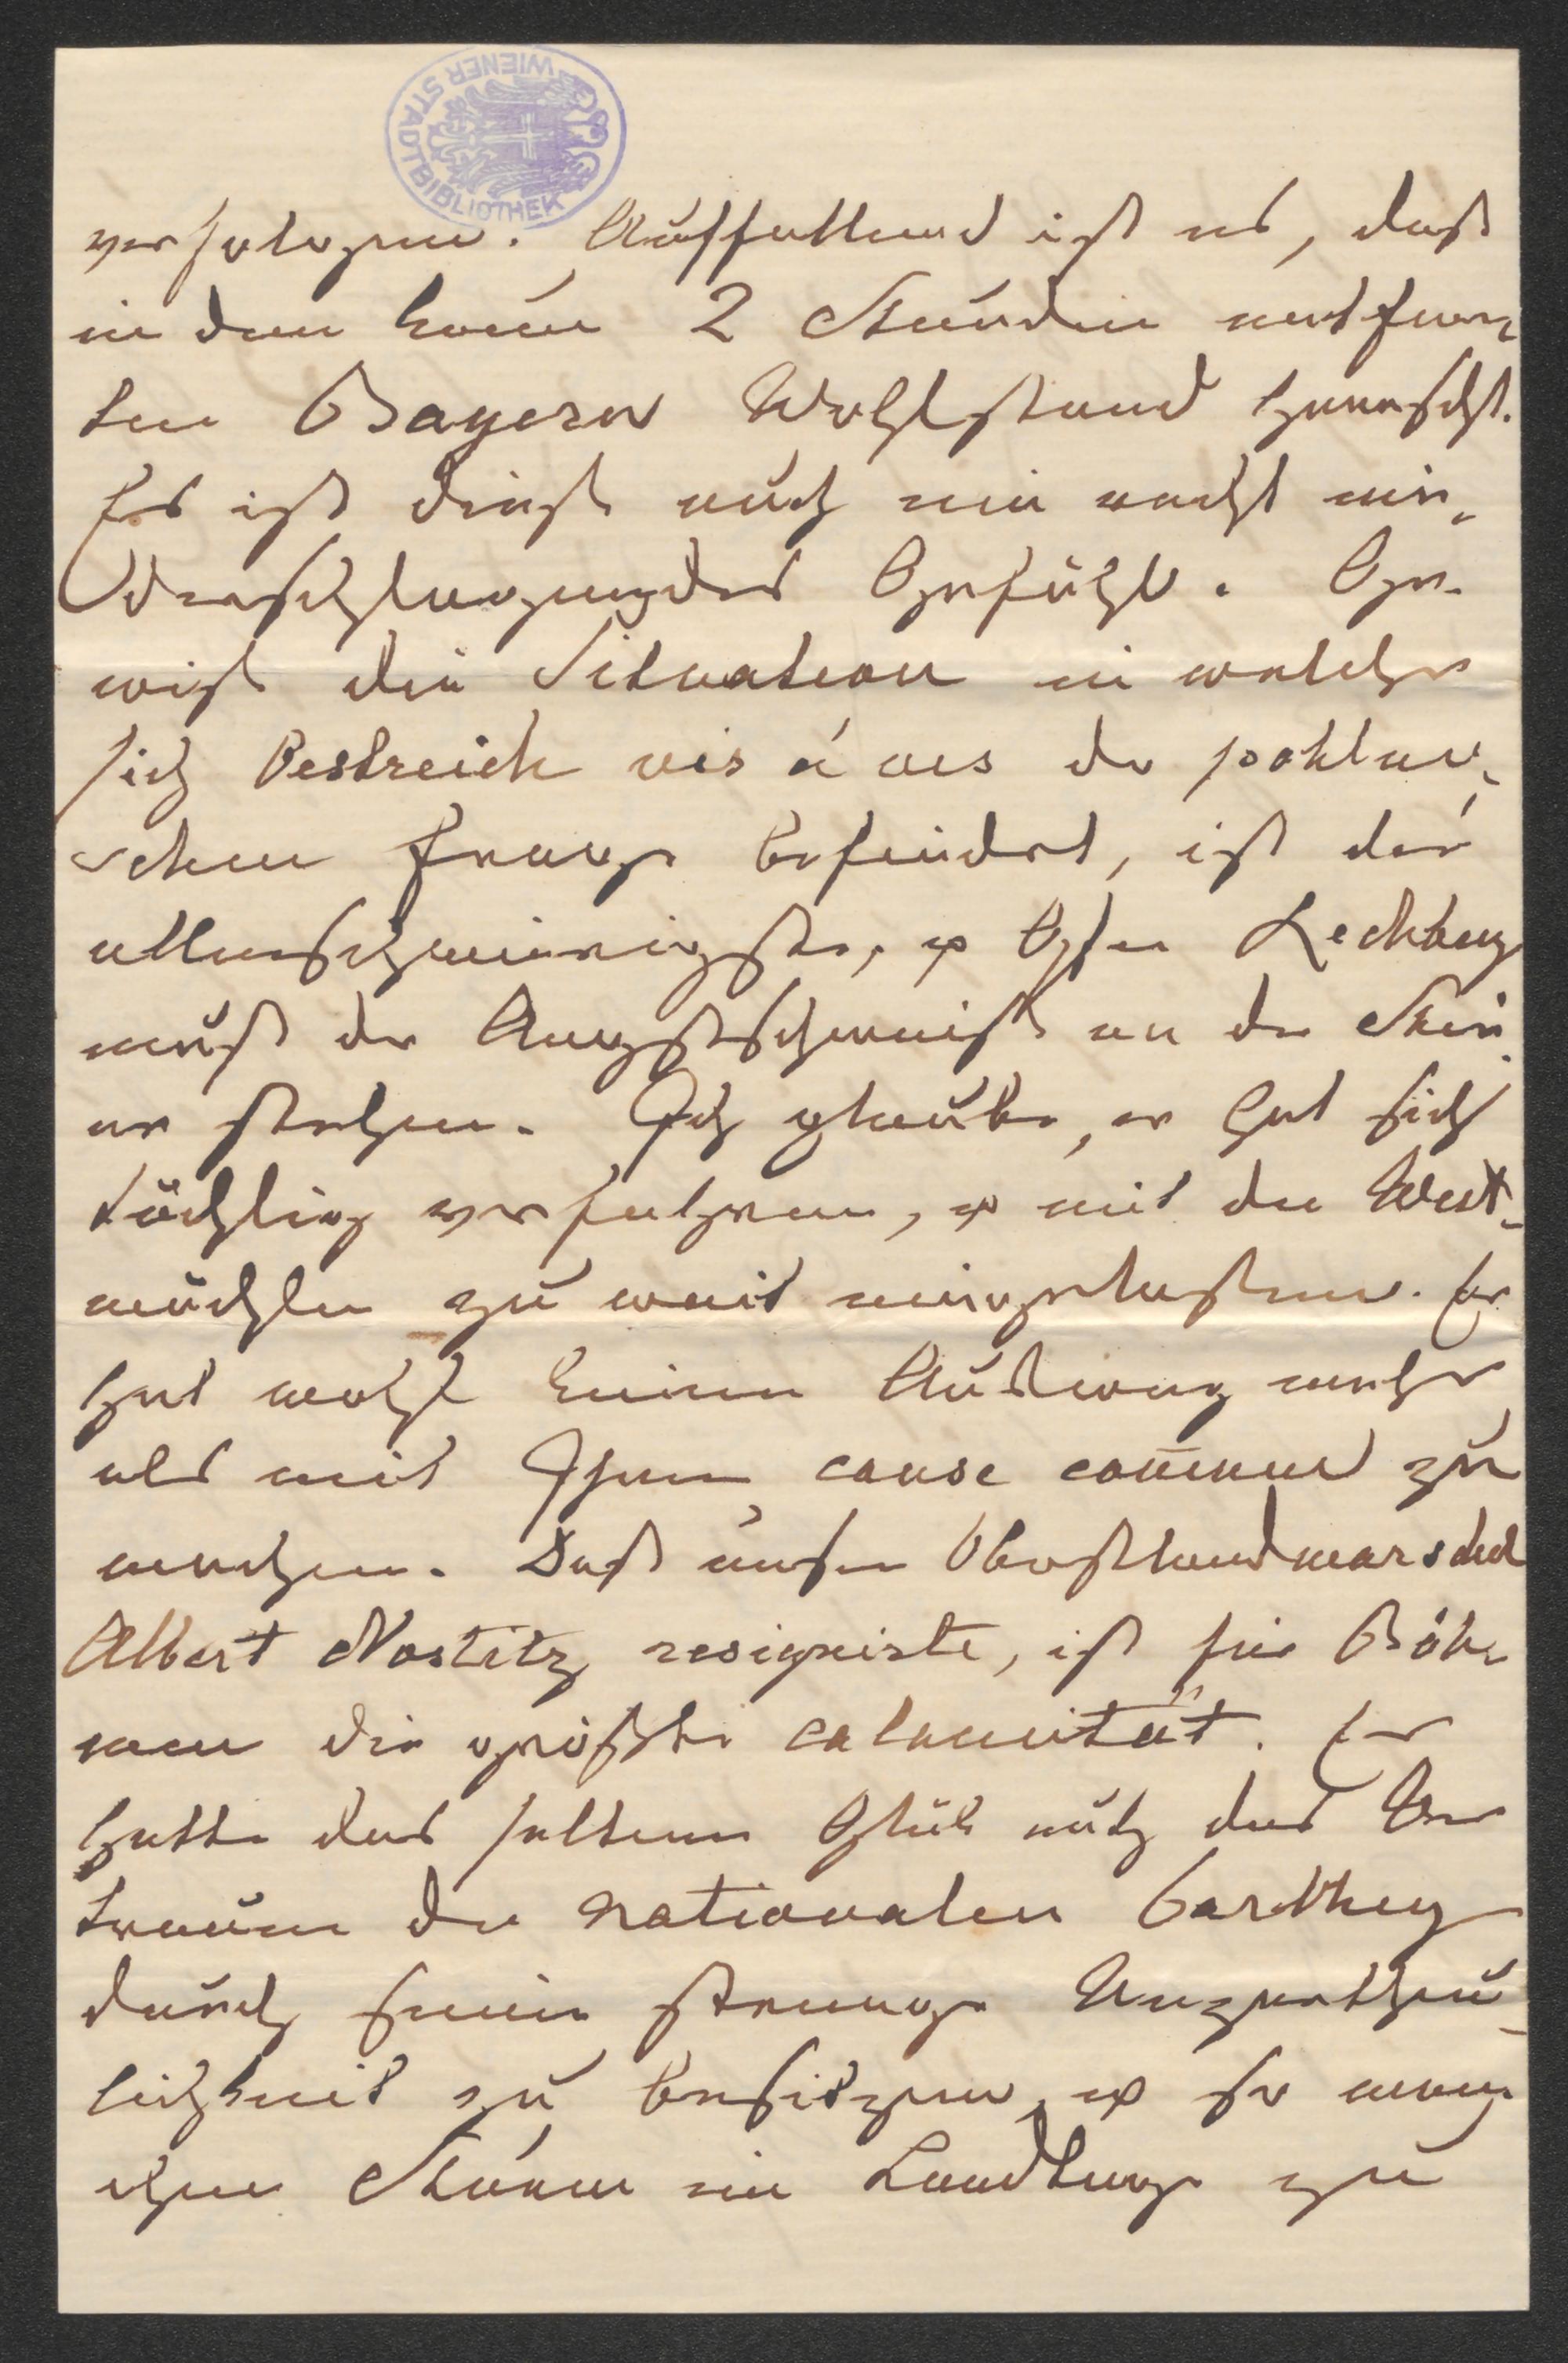 WIENER STADTBIBLIOTHEK
verfolgen. Auffallend ist es, daß
in dem kaum 2 Stunden entfern¬
ten Bayern Wohlstand herrscht.
Es ist dieß auch ein recht nie¬
derschlagendes Gefühl. Ge¬
wiß die Situation in welcher
sich Oestreich vis á vis der pohlni¬
schen Frage befindet, ist die
allerschwierigste, & Gfen Rechberg
muß der Angstschweiß an der Stir¬
ne stehen. Ich glaube, er hat sich
tüchtig verfahren, & mit den West¬
mächten zu weit eingelaßen. Er
hat wohl keinen Ausweg mehr
als mit Ihnen cause commune zu
machen. Daß unser Oberstlandmarschal
Albert Nostitz resignirte, ist für Böh¬
men die größte calamität. Er
hatte das seltene Glük auch das Ver
trauen der nationalen Parthey
durch seine strenge Unparthei¬
lichkeit zu besitzen, & so man¬
chen Sturm im Landtage zu